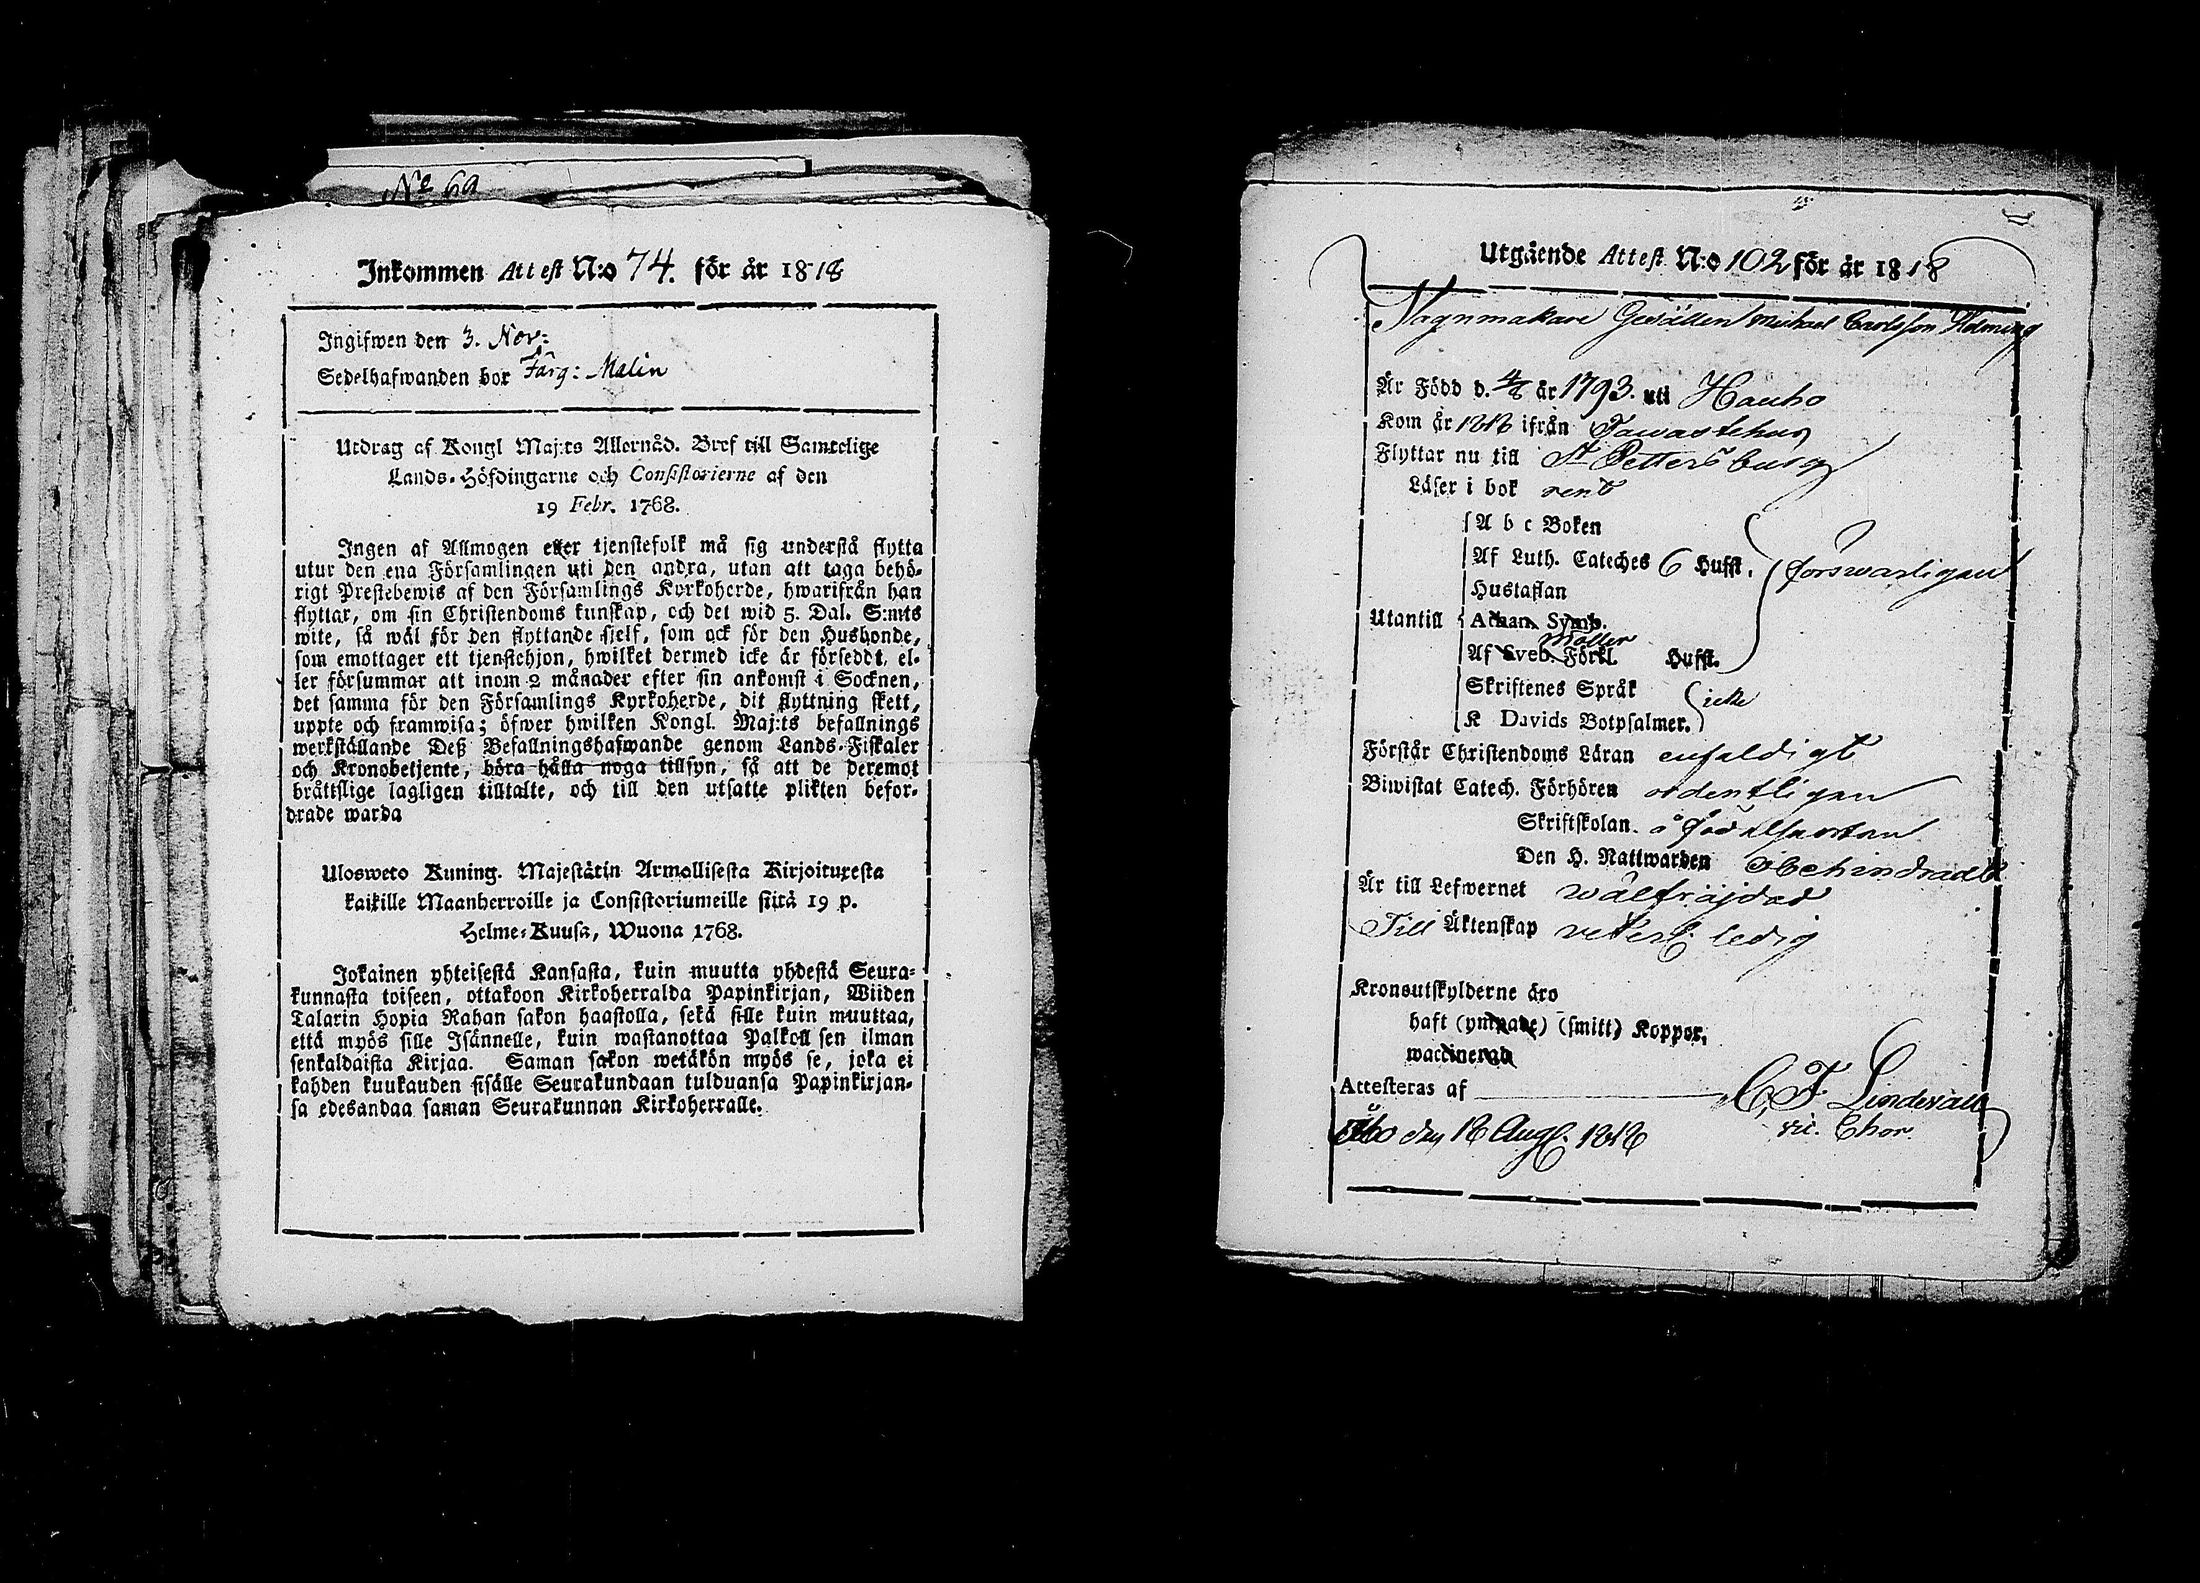 N:o 69
Inkommen Attest N:o 74. för år 1818
Ingifwen den 3. Nov:
Sedelhafwanden bor Färg: Malin
Utdrag af Kongl Maj:ts Allernåd. Bref till Samtelige
Lands-Höfdingarne och Consistorierne af den
19 Febr. 1768.
Ingen af Allmogen eller tjenstefolk må sig understå flytta
utur den ena Församlingen uti den andra, utan att taga behö-
rigt Prestebewis af den Församlings Kyrkoherde, hwarifrån han
flyttar, om sin Christendoms kunskap, och det wid 5. Dal. S:mts
wite, så wäl för den flyttande sjelf, som ock för den Husbonde,
som emottager ett tjenstehjon, hwilket dermed icke är förseddt, el-
ler försummar att inom 2 månader efter sin ankomst i Socknen,
det samma för den Församlings Kyrkoherde, dit flyttning skett,
uppte och framwisa; öfwer hwilken Kongl. Maj:ts befallnings
werkställande Deß Befallningshafwande genom Lands-Fiskaler
och Kronobetjente, böra hålla noga tillsyn, så att de deremot
bråttslige lagligen tilltalte, och till den utsatte plikten befor-
drade warda
Ulosweto Kuning. Majestätin Armollisesta Kirjoituxesta
kaikille Maanherroille ja Consistoriumeille siitä 19 p.
Helme-Kuusa, Wuona 1768.
Jokainen yhteisestä Kansasta, kuin muutta yhdestä Seura-
kunnasta toiseen, ottakoon Kirkoherralda Papinkirjan, Wiiden
Talarin Hopia Rahan sakon haastolla, sekä sille kuin muuttaa,
että myös sille Isännelle, kuin wastanottaa Palkollisen ilman
senkaldaista Kirjaa. Saman sakon wetäkön myös se, joka ei
kahden kuukauden sisälle Seurakundaan tulduansa Papinkirjan-
sa edesandaa saman Seurakunnan Kirkoherralle.
Utgående Attest N:o 102 för år 1818
Wagnmakare Gesällen Michael Carlsson Helming
Är Född d. 4/8 år 1793. uti Hauho
Kom år 1818 ifrån Tawastehus
Flyttar nu till St Pettersburg
Läser i bok rent
A b c Boken
Af Luth. Cateches 6 Hufst. förswarligen
Hustaflan
Utantill Athan. Symb.
Möller
Af Sveb. Förkl. Hufst.
Skriftenes Språk icke
K Davids Botpsalmer.
Förstår Christendoms Läran enfaldigt
Biwistat Catech. Förhören ordentligen
Skriftskolan.
Den H. Nattwarden obehindrad
Är till Lefwernet wälfräjdad
Till Äktenskap ledig
Kronoutskylderne äro
haft (ympade) (smitt) Koppor,
waccinerad
Attesteras af C. F. Lindevall
Åbo den 18 Aug. 1818 vic. Chor.